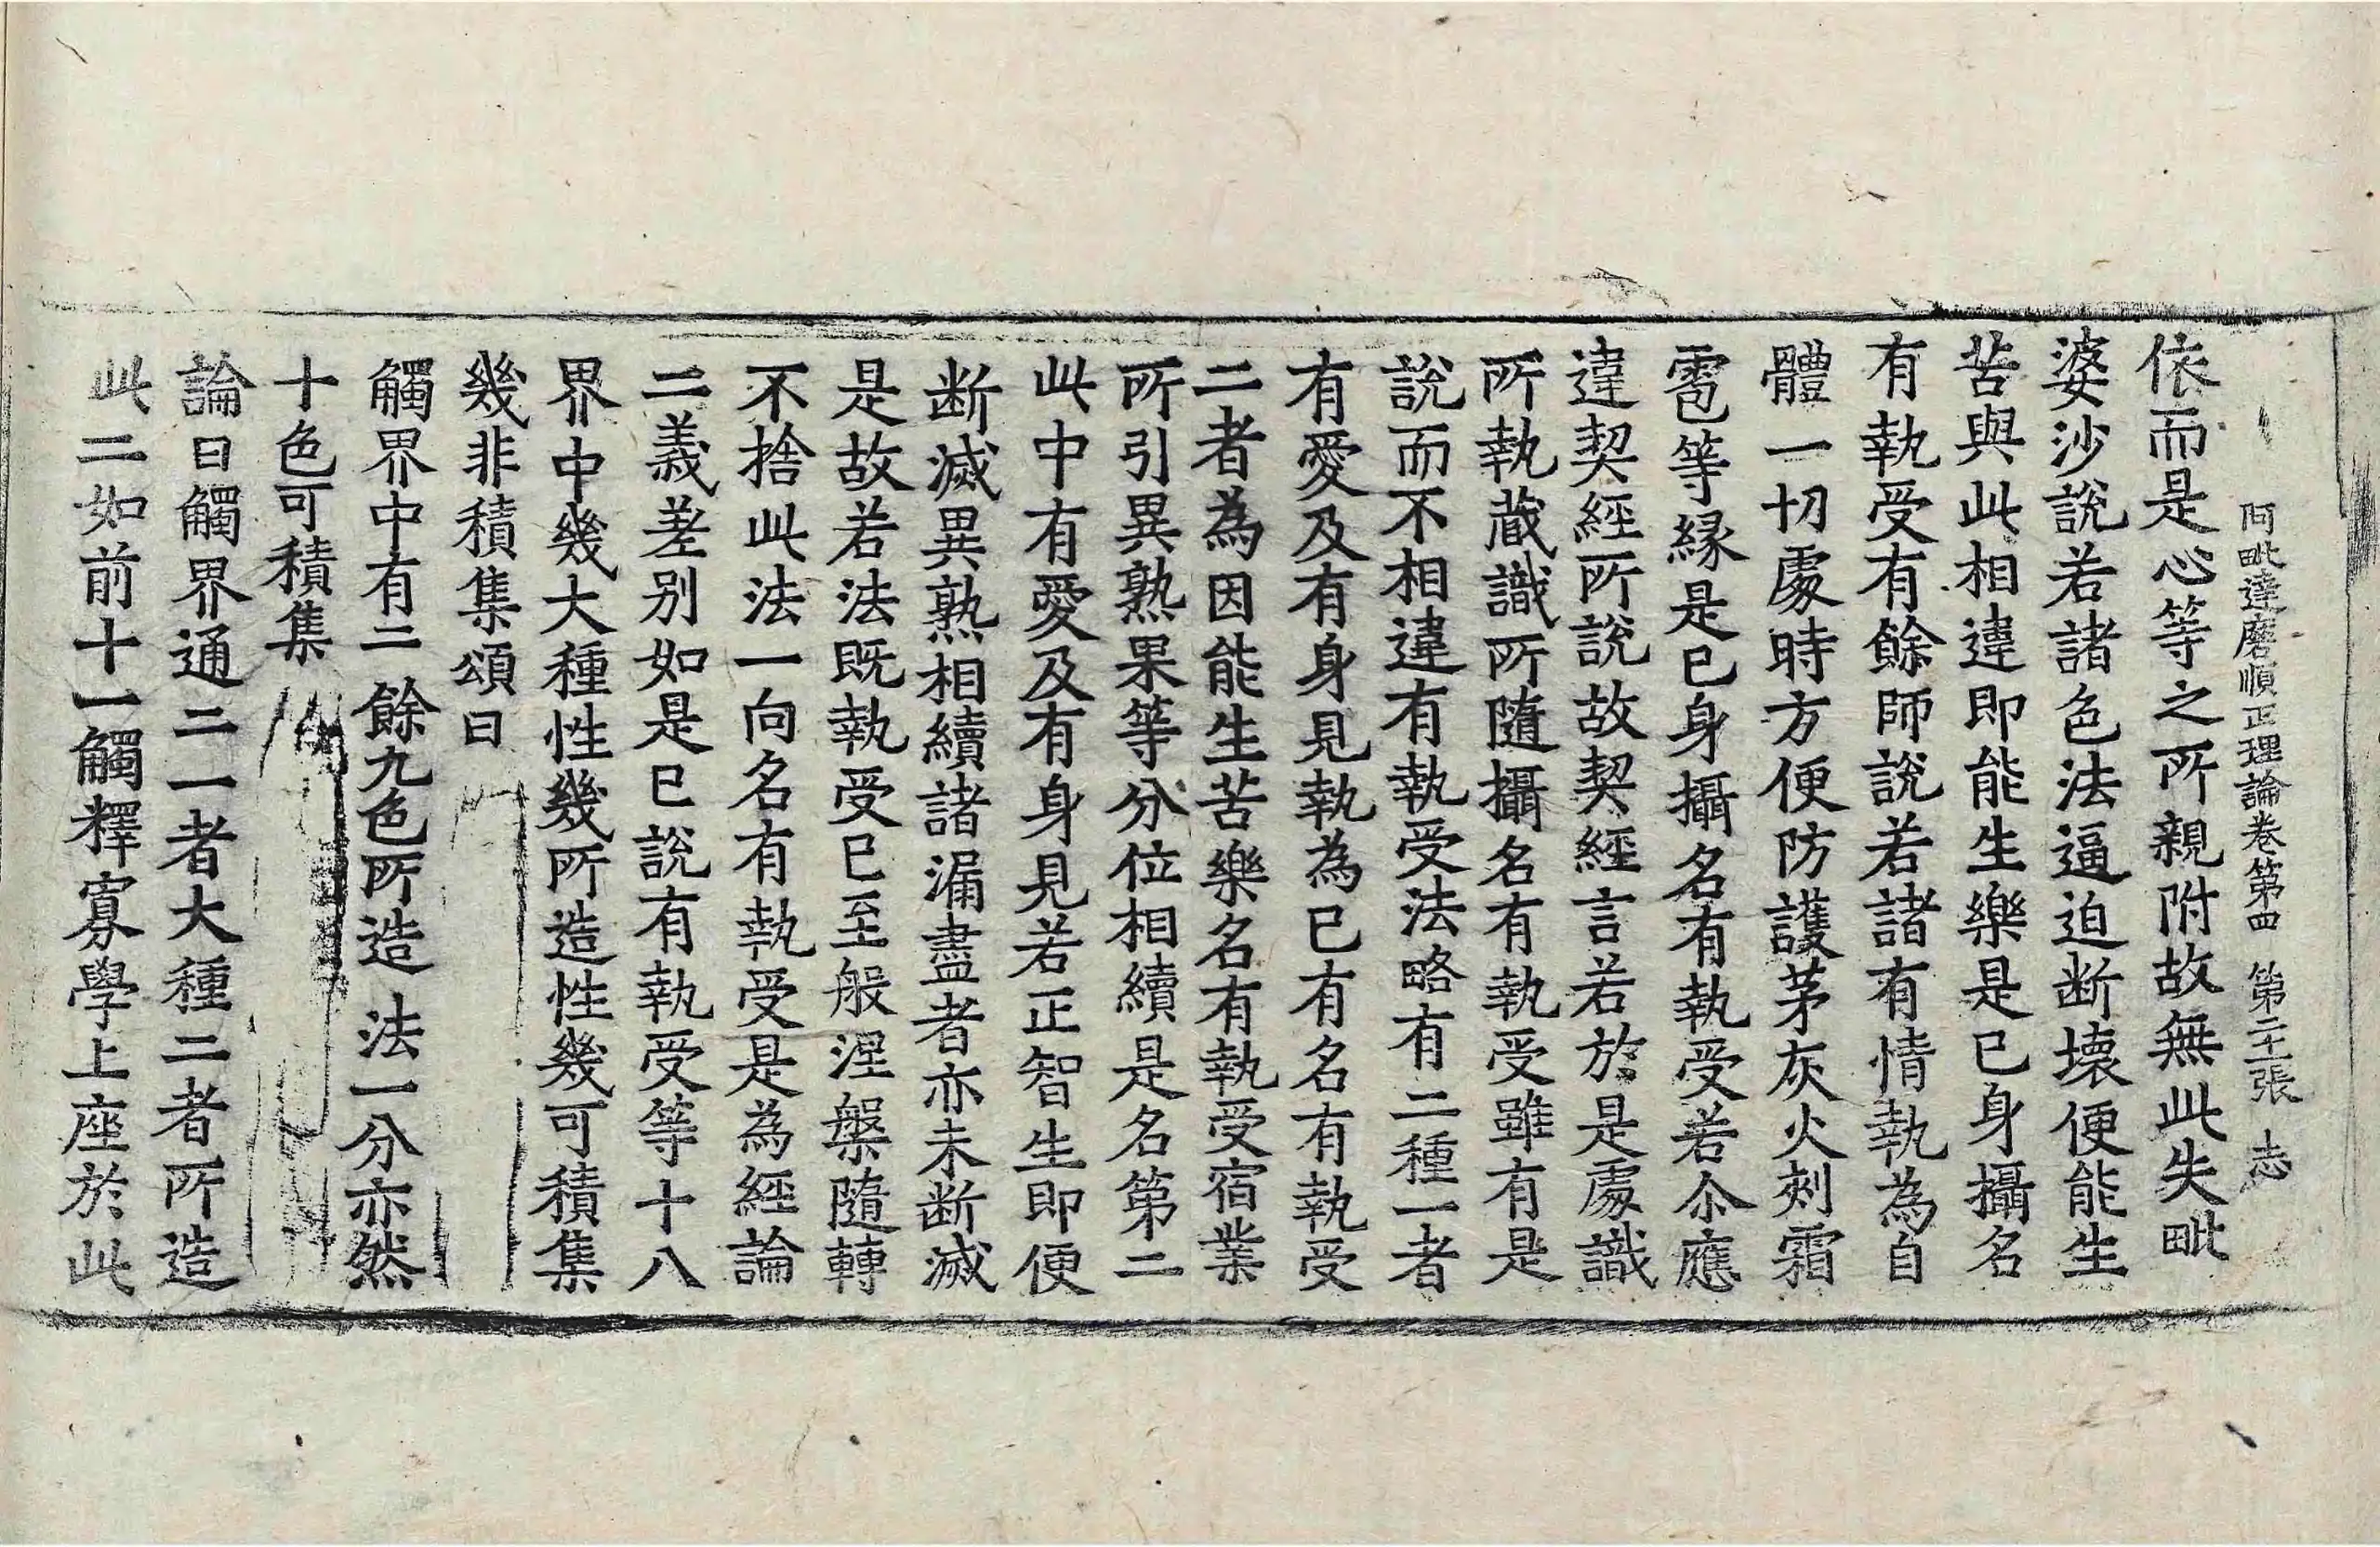 阿毗達磨順正理論卷第四　第二十張　志
依而是心等之所親附故無此失毗
婆沙說若諸色法逼迫断壞便能生
苦與此相違即能生樂是已身攝名
有執受有餘師說若諸有情執為自
體一切處時方便防護茅灰火刾霜
雹等緣是已身攝名有執受若尒應
違契經所說故契經言若於是處識
所執藏識所隨攝名有執受雖有是
說而不相違有執受法略有二種一者
有愛及有身見執為已有名有執受
二者為因能生苦樂名有執受宿業
所引異熟果等分位相續是名第二
此中有愛及有身見若正智生即便
断滅異熟相續諸漏盡者亦未断滅
是故若法既執受已至般涅槃隨轉
不捨此法一向名有執受是為經論
二義差別如是已說有執受等十八
界中幾大種性幾所造性幾可積集
幾非積集頌曰
觸界中有二　餘九色所造　法一分亦然
十色可積集
論曰觸界通二一者大種二者所造
此二如前十一觸釋寡學上座於此